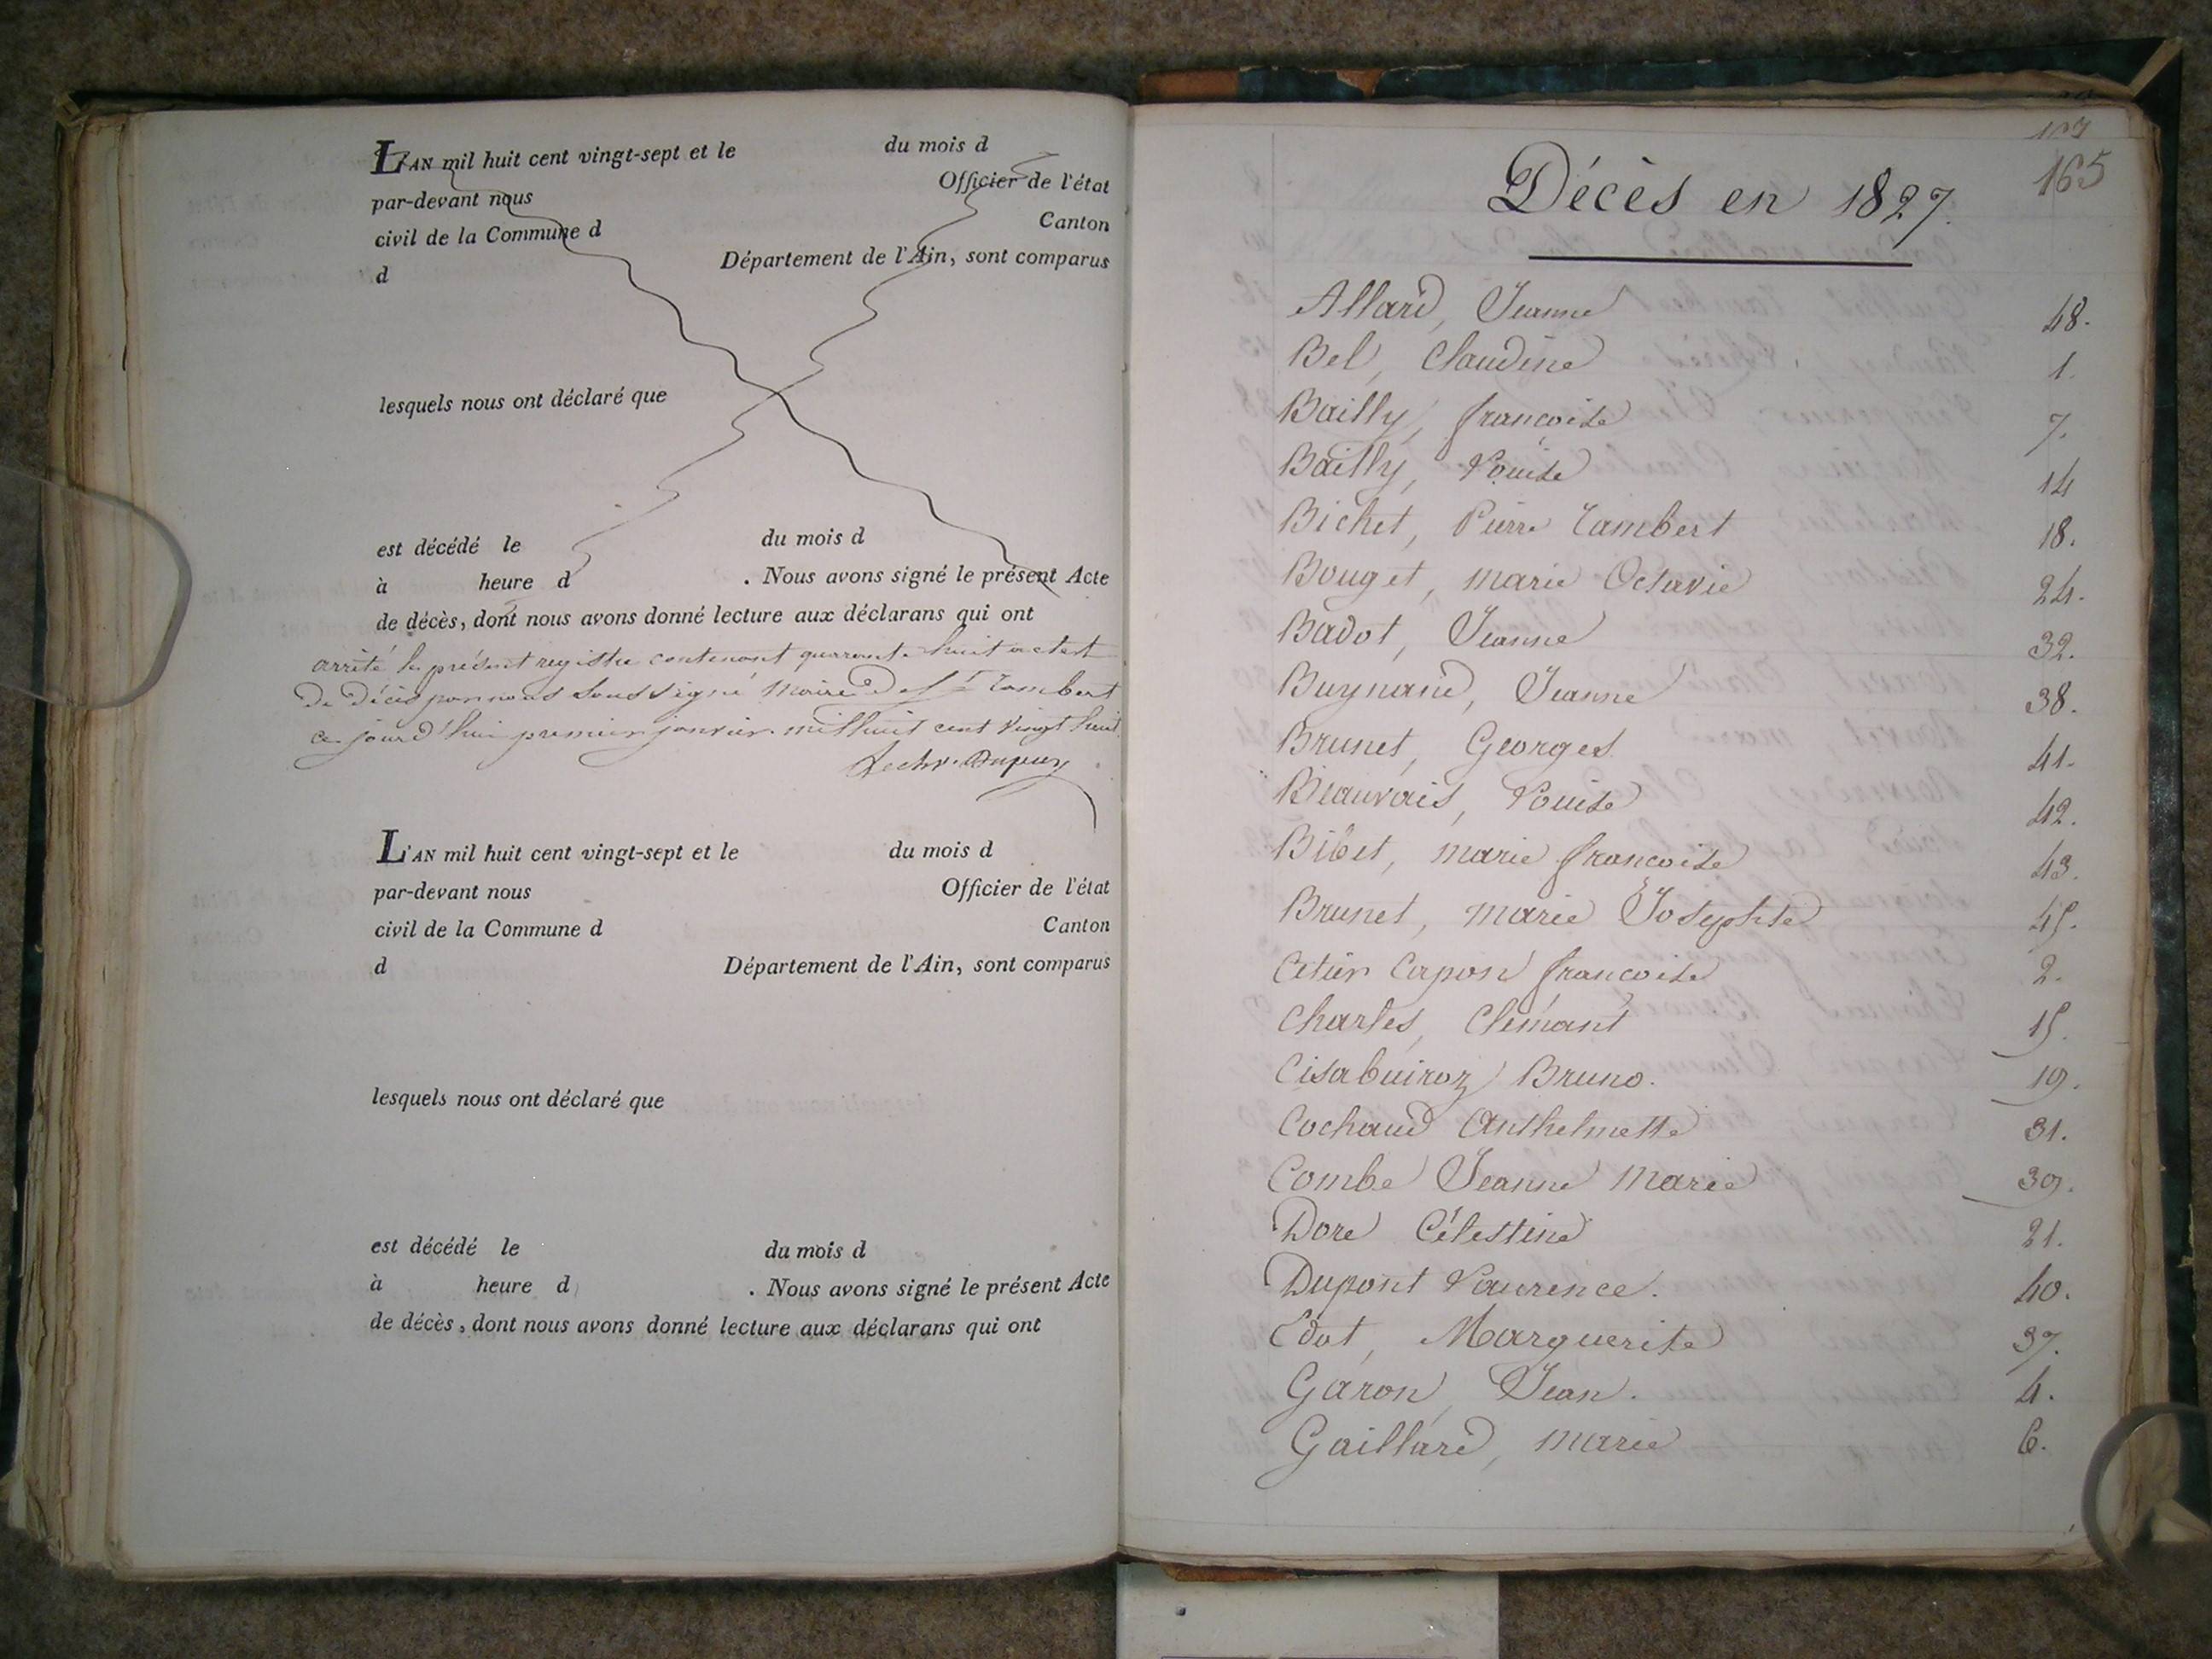 L'AN mil huit cent vingt-sept et le du mois d
par-devant nous Officier de l'état
civil de la Commune d Canton
d Département de l'Ain, sont comparus
lesquels nous ont déclaré que
est décédé le du mois d
à heure d . Nous avons signé le présent Acte
de décès, dont nous avons donné lecture aux déclarans qui ont
arrité le présent registre contenant quarante huit actest
De Décès par nous Soussigné Maire de St Rambert
ce jourd'hui premier janvier mil huit cent vingt huit
Dupuy
L'AN mil huit cent vingt-sept et le du mois d
par-devant nous Officier de l'état
civil de la Commune d Canton
d Département de l'Ain, sont comparus
lesquels nous ont déclaré que
est décédé le du mois d
à heure d . Nous avons signé le présent Acte
de décès, dont nous avons donné lecture aux déclarans qui ont
165
Décès en 1827.
Allard, Jeanne 48.
Bel, Claudine 1.
Bailly, françoise 7.
Bailly, Louise 14
Bichet, Pierre Rambert 18.
Bouget, marie Octavie 24.
Badot, Jeanne 32.
Buynand, Jeanne 38.
Brunet, Georges 41.
Beauvais, Louise 42.
Bibet, marie francoise 43.
Brunet, marie Josephte 45.
Cetier Capon francoise 2.
Charles, Clémant 15.
Cisabuiroz Bruno. 19.
Cochaud Anthelmette 31.
Combe Jeanne Marie 39.
Dore Célestine 21.
Dupont Laurence. 40.
Edot, Marguerite 37.
Garon, Jean. 4.
Gaillard, marie 6.